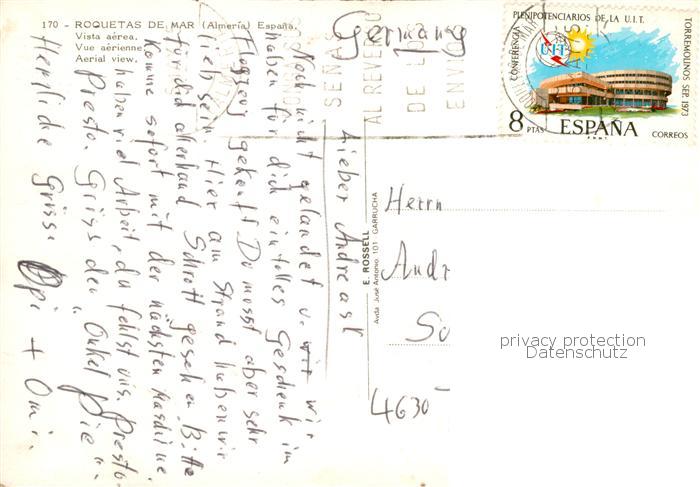 170 - ROQUETAS DE MAR (Almería) España.
Vista aérea.
Vue aérienne
Aerial view.
Germany
SEÑA
AL REVE
DE LO
ENVIO
CONFERENCIA PLENIPOTENCIARIOS DE LA U.I.T.
TORREMOLINOS SEP. 1973
UIT
8 PTAS
ESPAÑA
CORREOS
Lieber Andreas!
Noch nicht gelandet u. wir
haben für dich ein tolles Geschenk im
Flugzeug gekauft. Du musst aber sehr
lieb sein. Hier am Strand haben wir
für did allerhand Schrott gesehen. Bitte
komme sofort mit der nächsten Maschine.
haben viel Arbeit, du fehlst uns. Presto-
Presto. Grüss den "Onkel Pie".
Herzliche Grüsse Opi + Omi.
E. ROSSELL
Avda José Antonio, 101 GARRUCHA
Herrn
Andr
So
4630
privacy protection
Datenschutz